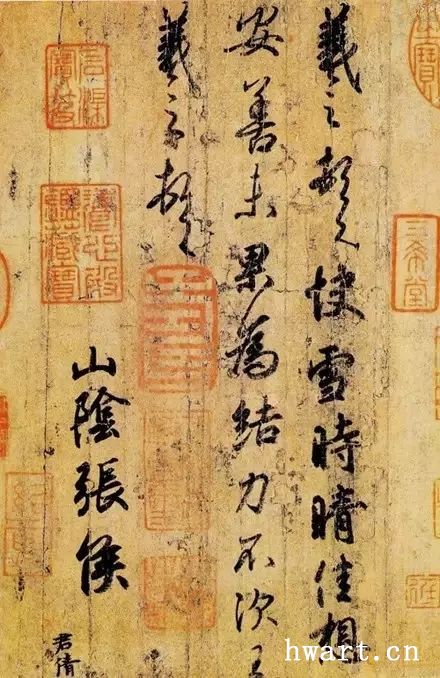 羲之頓首快雪時晴佳想
安善未果為結力不次王
羲之頓首
山陰張侯
君倩
三希堂
石渠寶笈
養心殿鑑藏寶
hwart.cn